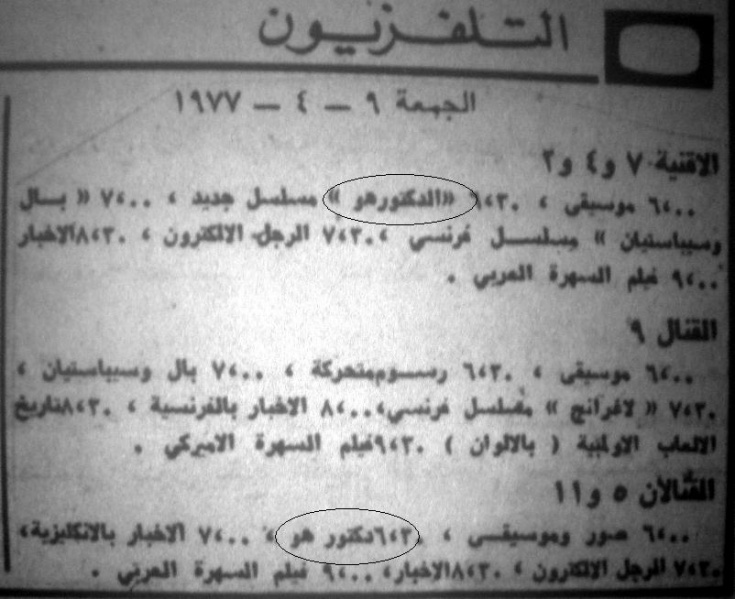 التلفزيون
الجمعة ٩ - ٤ - ١٩٧٧
الاقنية ٧ و ٤ و ٢
٦،٠٠ موسيقى ، ٦،٣٠ «الدكتور هو » مسلسل جديد ، ٧،٠٠ « بال
وسيباستيان » مسلسل فرنسي ، ٧،٣٠ الرجل الالكترون ، ٨،٣٠ الاخبار
٩،٠٠ فيلم السهرة العربي .
القنال ٩
٦،٠٠ موسيقى ، ٦،٣٠ رسوم متحركة ، ٧،٠٠ بال وسيباستيان ،
٧،٣٠ « لاغرانج » مسلسل فرنسي ، ٨،٠٠ الاخبار بالفرنسية ، ٨،٣٠ تاريخ
الالعاب الاولمبية ( بالالوان ) ٩،٣٠ فيلم السهرة الاميركي .
القنالان ٥ و ١١
٦،٠٠ صور وموسيقى ، ٦،٣٠ دكتور هو ، ٧،٠٠ الاخبار بالانكليزية ،
٧،٣٠ الرجل الالكترون ، ٨،٣٠ الاخبار ، ٩،٠٠ فيلم السهرة العربي .